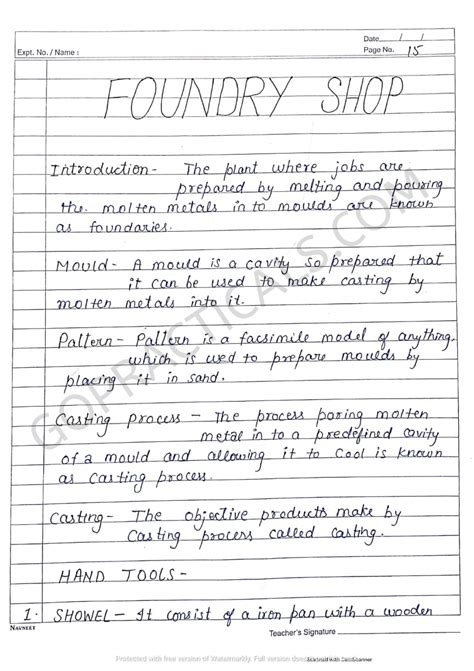 Date / /
Expt. No. / Name :
Page No. 15
FOUNDRY SHOP
Introduction- The plant where jobs are
prepared by melting and pouring
the molten metals in to moulds are known
as foundaries.
Mould- A mould is a cavity so prepared that
it can be used to make casting by
molten metals into it.
Pattern- Pattern is a facsimile model of anything
which is used to prepare moulds by
placing it in sand.
Casting process - The process poring molten
metal in to a predefined cavity
of a mould and allowing it to cool is known
as casting process.
Casting- The objective products make by
Casting process called casting.
HAND TOOLS-
1. SHOWEL- It consist of a iron pan with a wooden
NAVNEET
Teacher's Signature
GOPRACTICALS.COM
Protected with free version of Watermarkly. Full version doesn't
Scanned with CamScanner